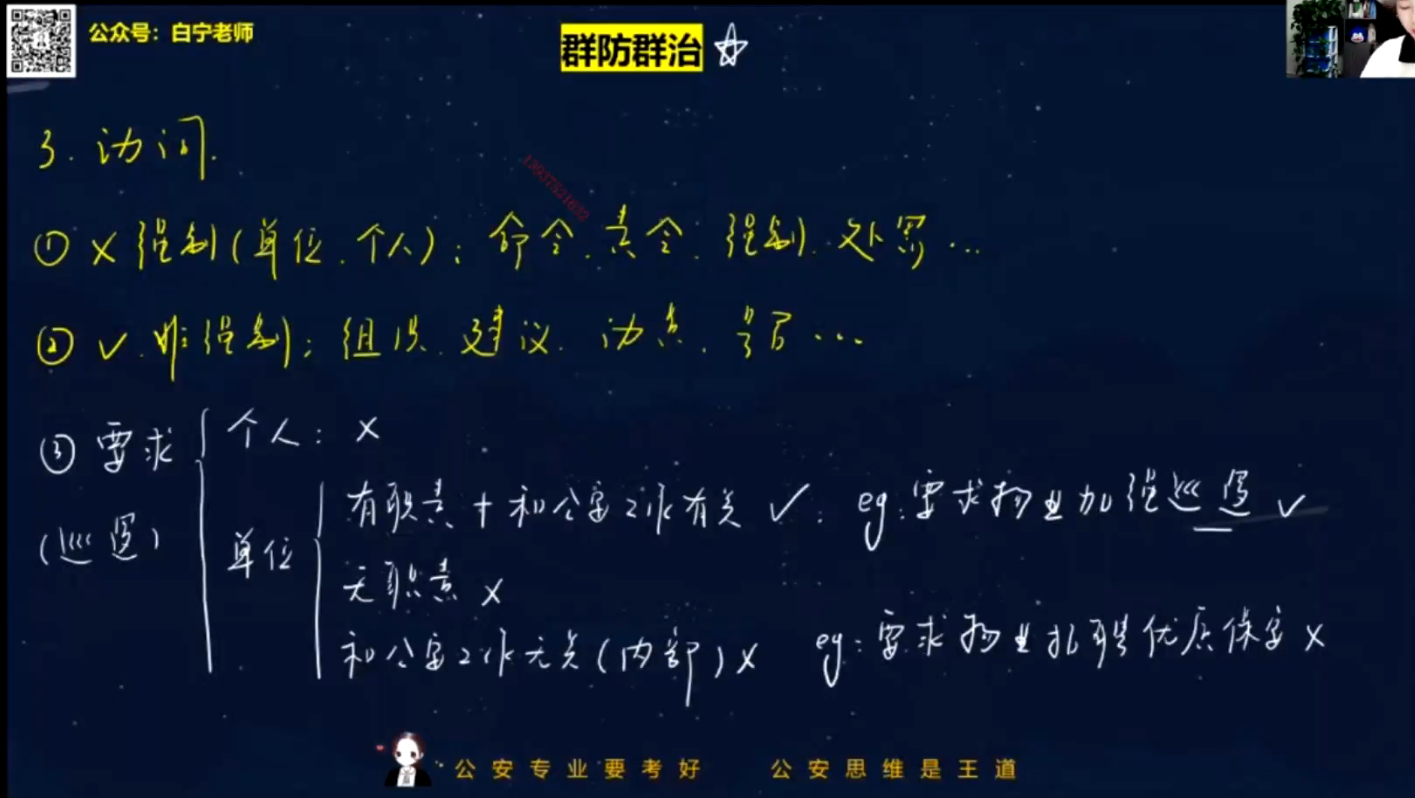 公众号：白宁老师
群防群治
3. 动词.
13937521632
① X 强制(单位、个人)：命令、责令、强制、处罚…
② ✓ 非强制：组织、建议、动员、号召…
③ 要求(巡逻)
个人： X
单位
有职责 + 和公安工作有关 ✓. eg:要求物业加强巡逻 ✓
无职责 X
和公安工作无关(内部) X eg:要求物业招聘优质保安 X
公安专业要考好 公安思维是王道